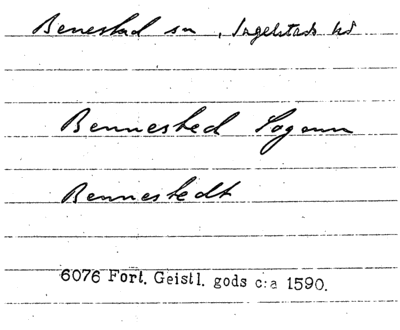 Benestad sn, Ingelstads hd
Bennested Sogenn
Bennestedt
6076 Fort. Geistl. gods c:a 1590.